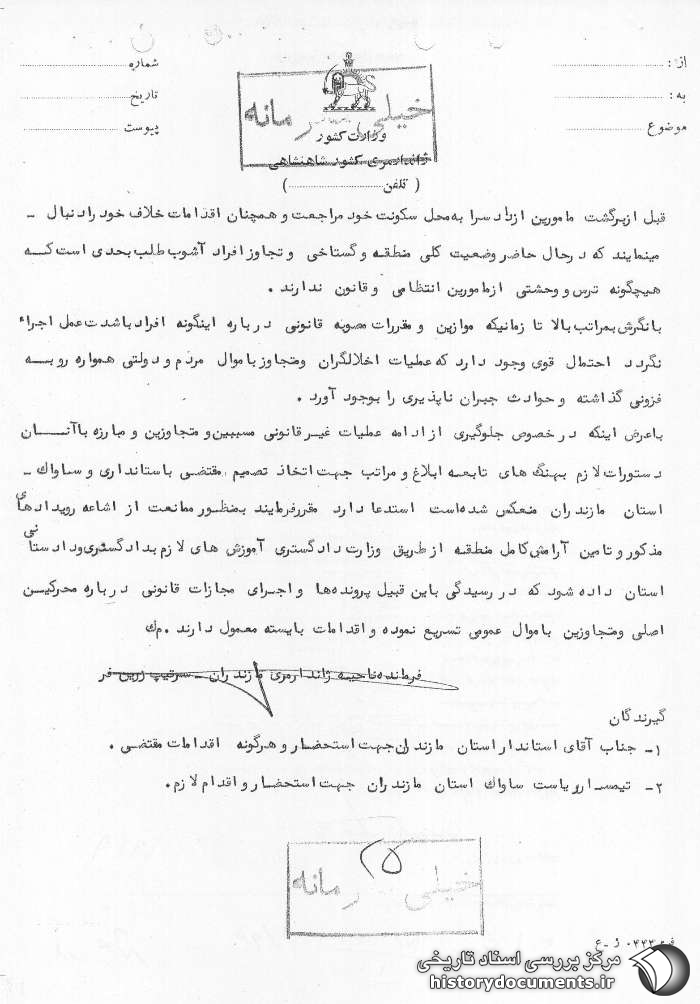 از :
شماره
به :
تاریخ
موضوع
پیوست
خیلی محرمانه
وزارت کشور
ژاندارمری کشور شاهنشاهی
( تلفن )
قبل از برگشت مامورین از دادسرا به محل سکونت خود مراجعت و همچنان اقدامات خلاف خود را دنبال -
مینمایند که در حال حاضر وضعیت کلی منطقه و گستاخی و تجاوز افراد آشوب طلب بحدی است که
هیچگونه ترس و وحشتی از مامورین انتظامی و قانون ندارند .
با نگرش بمراتب بالا تا زمانیکه موازین و مقررات مصوبه قانونی درباره اینگونه افراد باشدت عمل اجراء
نگردد احتمال قوی وجود دارد که عملیات اخلالگران ومتجاوز باموال مردم و دولتی همواره رو به
فزونی گذاشته و حوادث جبران ناپذیری را بوجود آورد .
باعرض اینکه در خصوص جلوگیری از ادامه عملیات غیر قانونی مسببین و متجاوزین و مبارزه باآنان
دستورات لازم بهنگ های تابعه ابلاغ و مراتب جهت اتخاذ تصمیم مقتضی باستانداری و ساواک -
استان مازندران منعکس شده است استدعا دارد مقرر فرمایند بمنظور ممانعت از اشاعه رویدادهای
مذکور و تامین آرامش کامل منطقه از طریق وزارت دادگستری آموزش های لازم بدادگستری و دادستانی
استان داده شود که در رسیدگی باین قبیل پرونده‌ها و اجرای مجازات قانونی درباره محرکین
اصلی ومتجاوزین باموال عمومی تسریع نموده و اقدامات بایسته معمول دارند . م ک
فرمانده ناحیه ژاندارمری مازندران - سرتیپ زرین فر
گیرندگان
۱- جناب آقای استاندار استان مازندران جهت استحضار و هرگونه اقدامات مقتضی .
۲- تیمسار ریاست ساواک استان مازندران جهت استحضار و اقدام لازم .
۲۵
خیلی محرمانه
ف - ۰۴۴۳ ژ - ع
مرکز بررسی اسناد تاریخی
historydocuments.ir